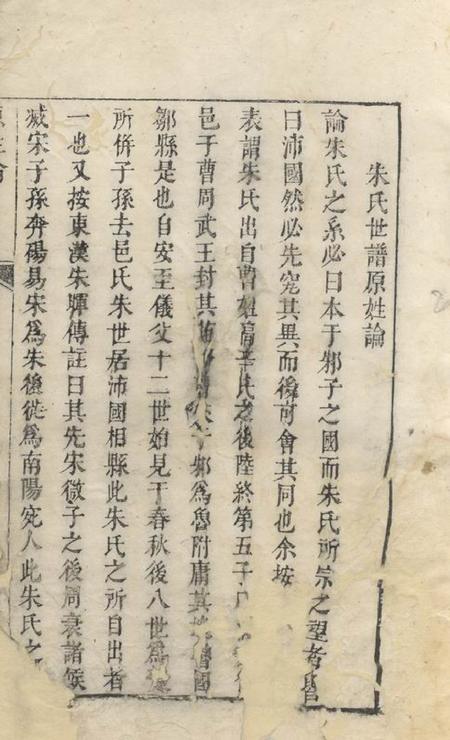 朱氏世譜原姓論
論朱氏之系必曰本于邾子之國而朱氏所宗之望者皆
曰沛國然必先究其異而後可會其同也余按
表謂朱氏出自曹姓高辛氏之後陸終第五子
邑于曹周武王封其苗于邾為魯附庸其地魯國
鄒縣是也自安至儀父十二世始見于春秋後八世為
所併子孫去邑氏朱世居沛國相縣此朱氏之所自出者
一也又按東漢朱暉傳註曰其先宋微子之後周衰諸侯
滅宋子孫奔碭易宋為朱後徙為南陽宛人此朱氏之